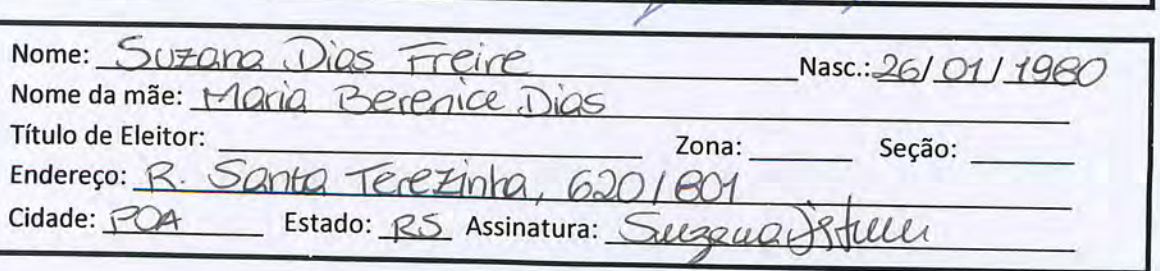 Nome: Suzana Dias Freire Nasc.: 26/01/1980
Nome da mãe: Maria Berenice Dias
Título de Eleitor: Zona: Seção:
Endereço: R. Santa Terezinha, 620/801
Cidade: POA Estado: RS Assinatura: Suzana